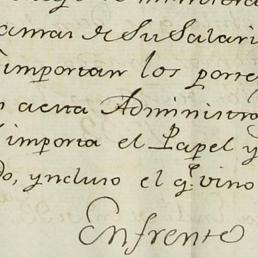 amas de Su Salari
importan los porte
n aesta Administra
importa el Papel y
do, yncluso el q.e vino
Enfrente